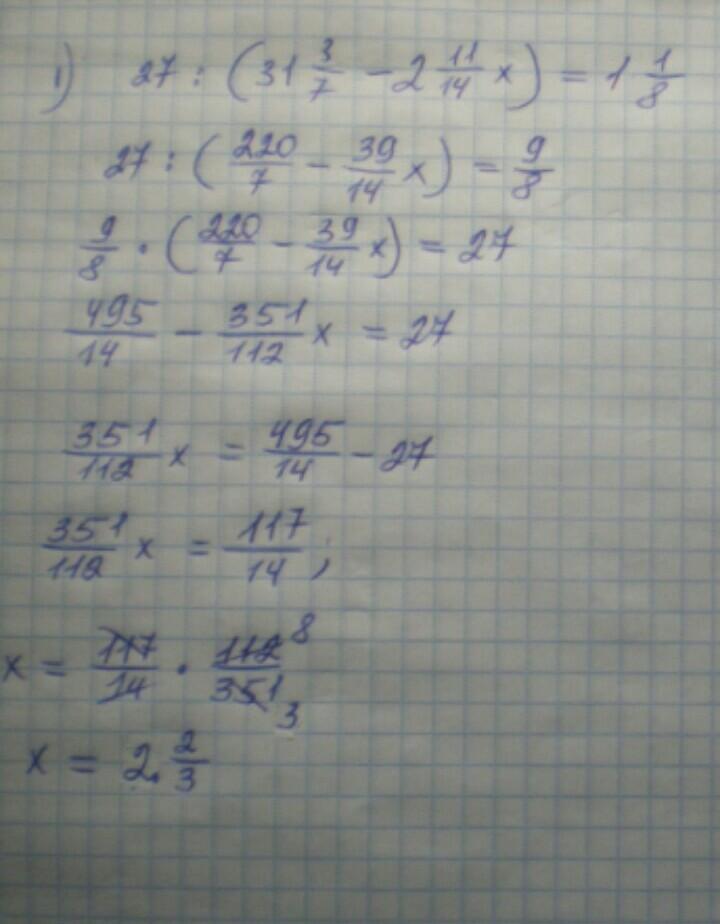 1) 27 : (31 3/7 - 2 11/14 x) = 1 1/8
27 : (220/7 - 39/14 x) = 9/8
9/8 · (220/7 - 39/14 x) = 27
495/14 - 351/112 x = 27
351/112 x = 495/14 - 27
351/112 x = 117/14 ;
x = 117/14 · 112/351 8 3
x = 2 2/3